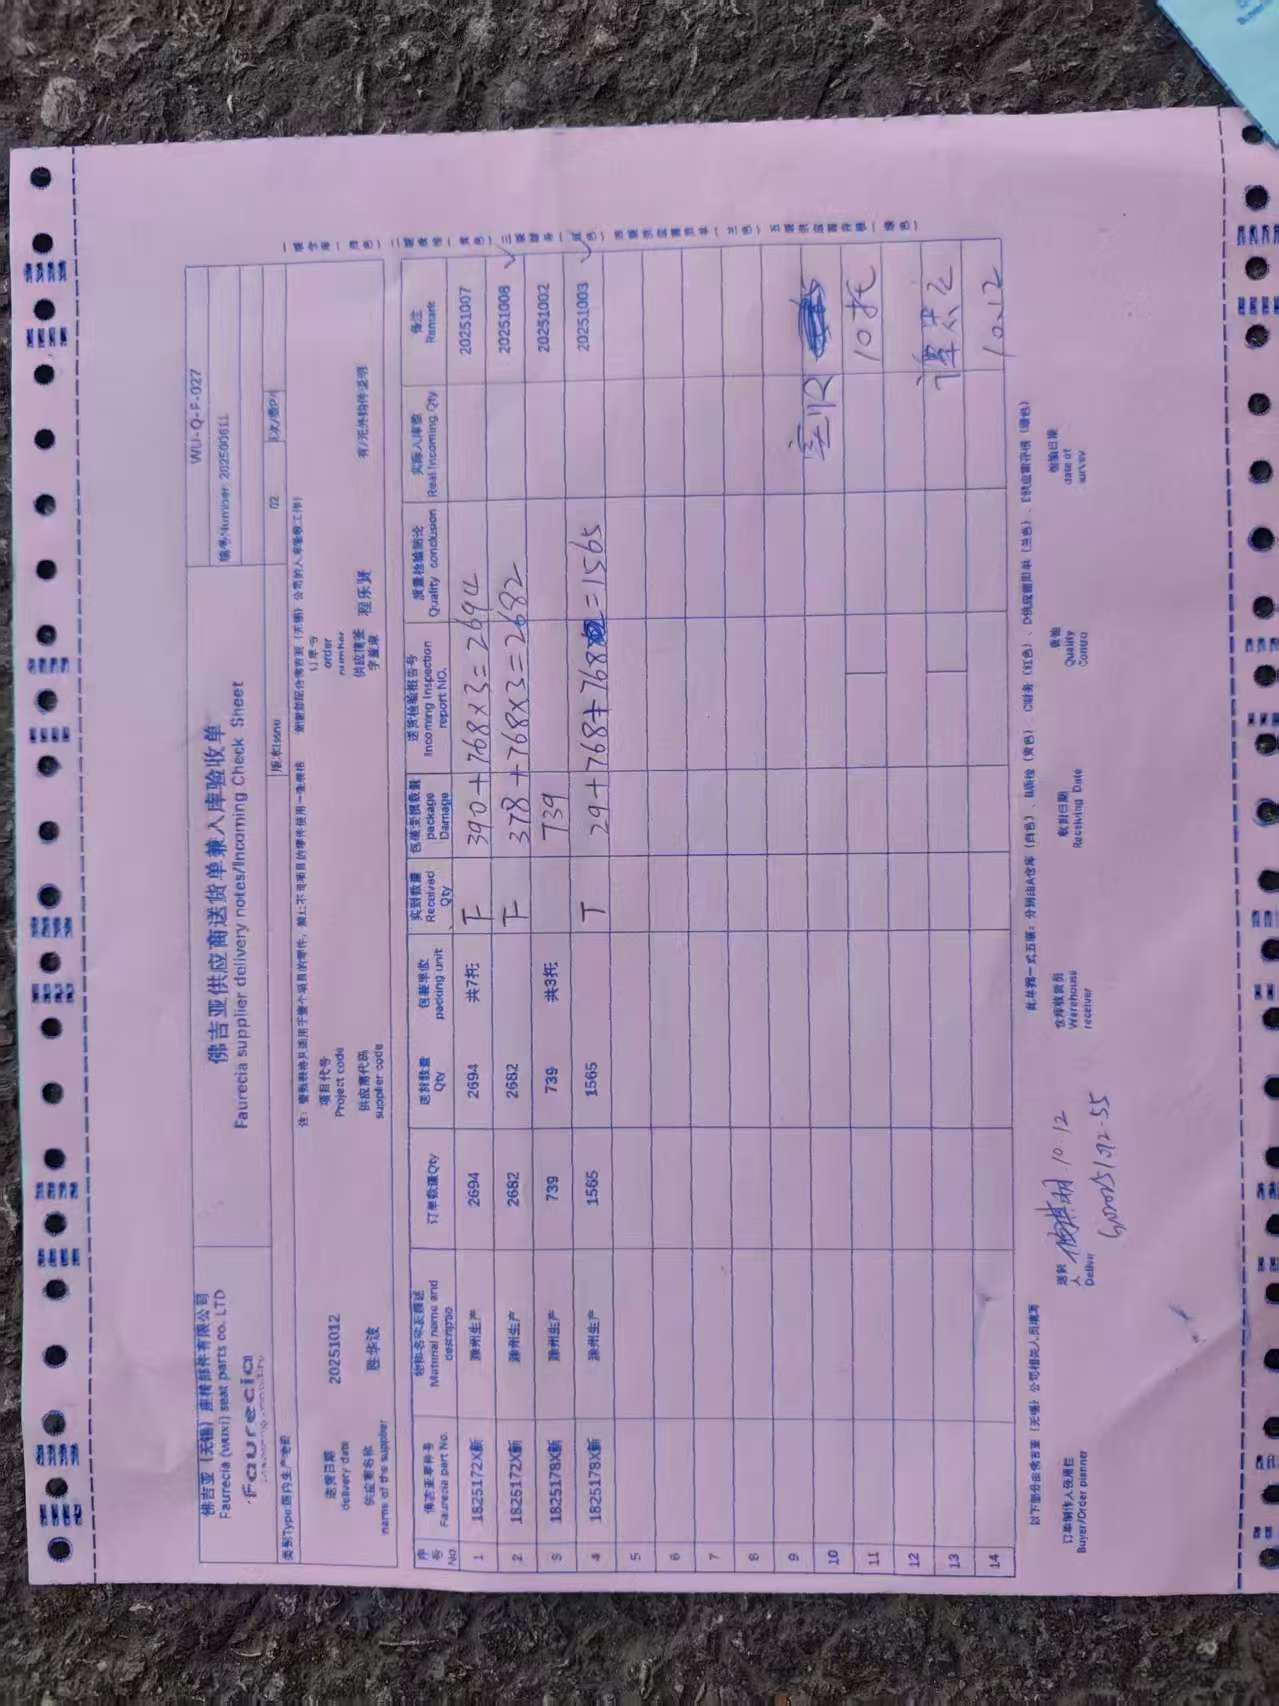 佛吉亚（无锡）座椅部件有限公司
Faurecia (wuxi) seat parts co. LTD
faurecia
佛吉亚供应商送货单兼入库验收单
Faurecia supplier delivery notes/Incoming Check Sheet
WU-Q-F-027
编号Number: 202500611
版本Issue 02
类别Type:国内生产
送货日期 20251012
delivery date
项目代号
Project code
订单号
order
number
供应商名称 陈华波
name of the supplier
供应商代码
supplier code
供应商签
字盖章 程乐贤
序号 No.
佛吉亚零件号 Faurecia part No.
物料名称及描述 Material name and descriptio
订单数量Qty
送货数量 Qty
包装单位 packing unit
实到数量 Received Qty
包装受损数量 package Damage
送货检验报告号 Incoming Inspection report NO.
质量检验结论 Quality conclusion
实际入库数 Real Incoming Qty
备注 Remark
1 1825172X新 滁州生产 2694 2694 共7托 下 390+768×3=2694 20251007
2 1825172X新 滁州生产 2682 2682 下 378+768×3=2682 20251008
3 1825178X新 滁州生产 739 739 共3托 739 20251002
4 1825178X新 滁州生产 1565 1565 T 29+768+768=1565 20251003
5
6
7
8
9
10 实收
11 10托
12
13
14 10.12
以下部分由佛吉亚（无锡）公司相关人员填写
订单制作人使用栏
Buyer/Order planner
送货人
Deliver
10.12
仓库收货员
Warehouse
receiver
收到日期
Receiving Date
质检
Quality
Contro
检验日期
date of
survey